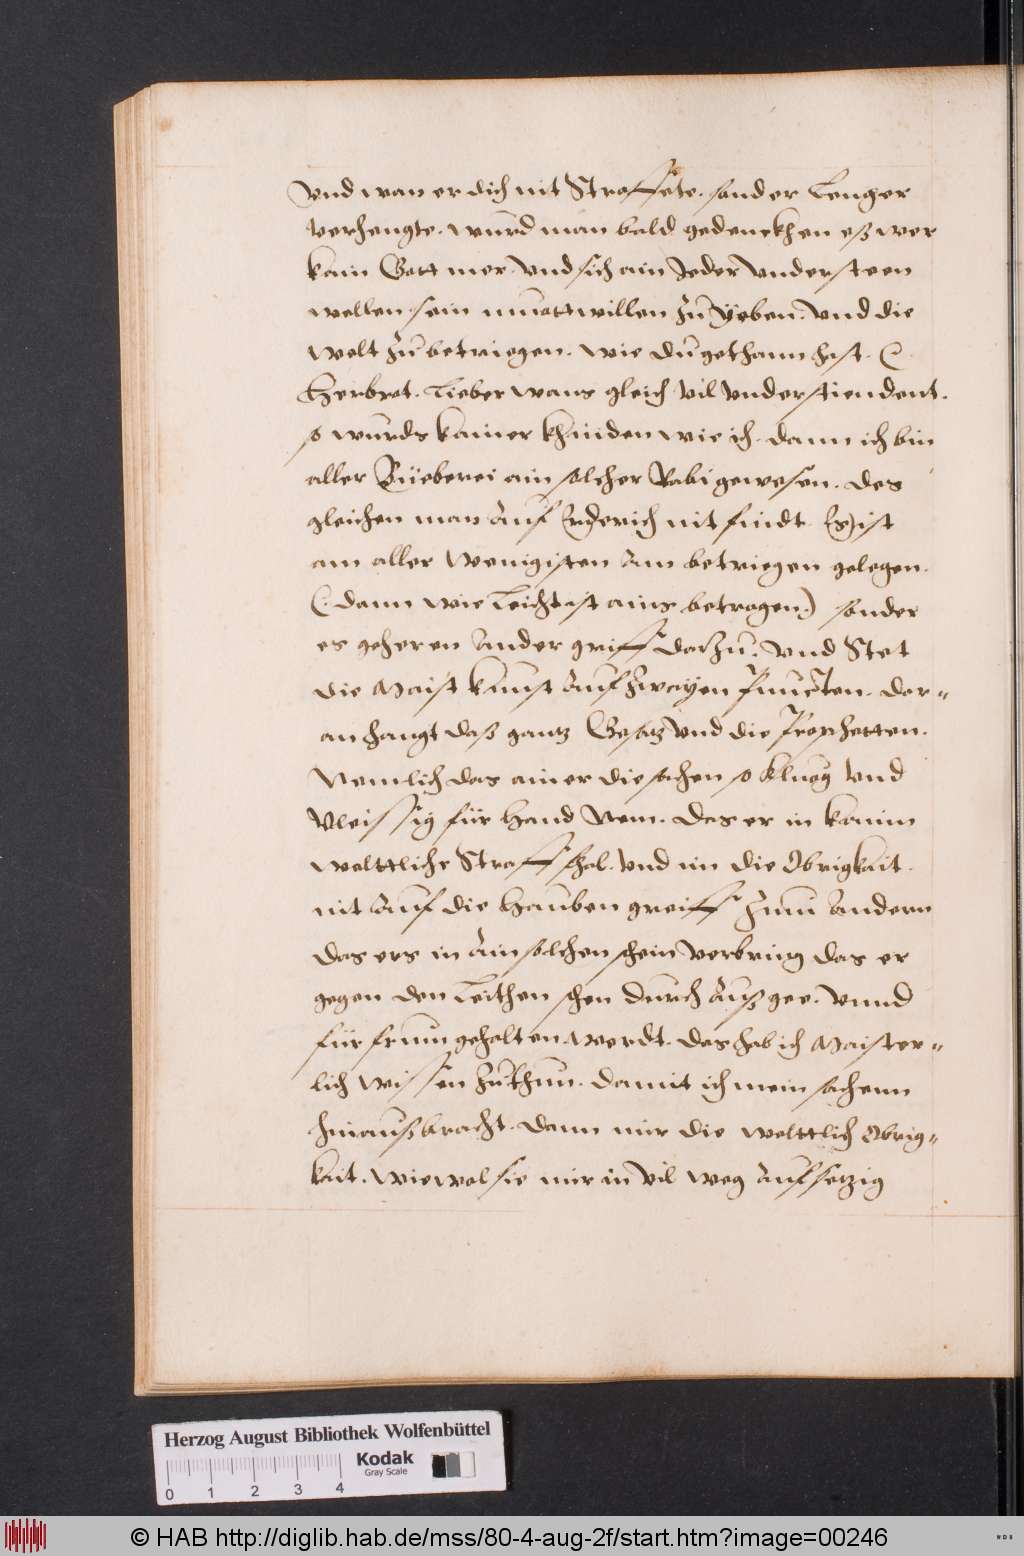 Vnd wan er dich nit Straffete. sonder Lenger
verhengte. wurd man bald gedenckhen eß wer
kain Gott mer. Vnd sich ain Jeder Vndersteen
wellen. sein muottwillen zu yeben. Vnd die
welt zu betriegen. wie du gethann hast. C
Herbrot. Lieber wans gleich vil vnderstiendent.
so wurds kainer khinden wie ich. dann ich bin
aller Bieberei ain solcher Rabi gewesen. des
gleichen man Auf Erderich nit findt. Es ist
am aller wenigisten Am betriegen gelegen.
(. dann wie Leicht ist ains betrogen.) sonder
es geheren Ander griff darzu. Vnd Stet
die Maist kunst Auf zwayen Puncten. dar=
an hangt daß gantz Gesatz Vnd die Prophetten.
Nemlich das ainer die sachen so kluog Vnd
Vleissig für Hand Nem. das er in kainn
welttliche Straff fhal. Vnd im die Obrigkait.
nit Auf die Hauben greiff. zum Andern
das ers in Ain solchen schein verbring das er
gegen den Leithen schen durch Auß gee. Vnnd
für frum gehalten werdt. das hab ich Maister=
lich wissen zuthun. damit ich mein sachenn
hinauß bracht. dann mir die welttlich Obrig=
kait. wiewol sie mir in vil weg Aufsetzig
Herzog August Bibliothek Wolfenbüttel
Kodak
Gray Scale
0 1 2 3 4
© HAB http://diglib.hab.de/mss/80-4-aug-2f/start.htm?image=00246